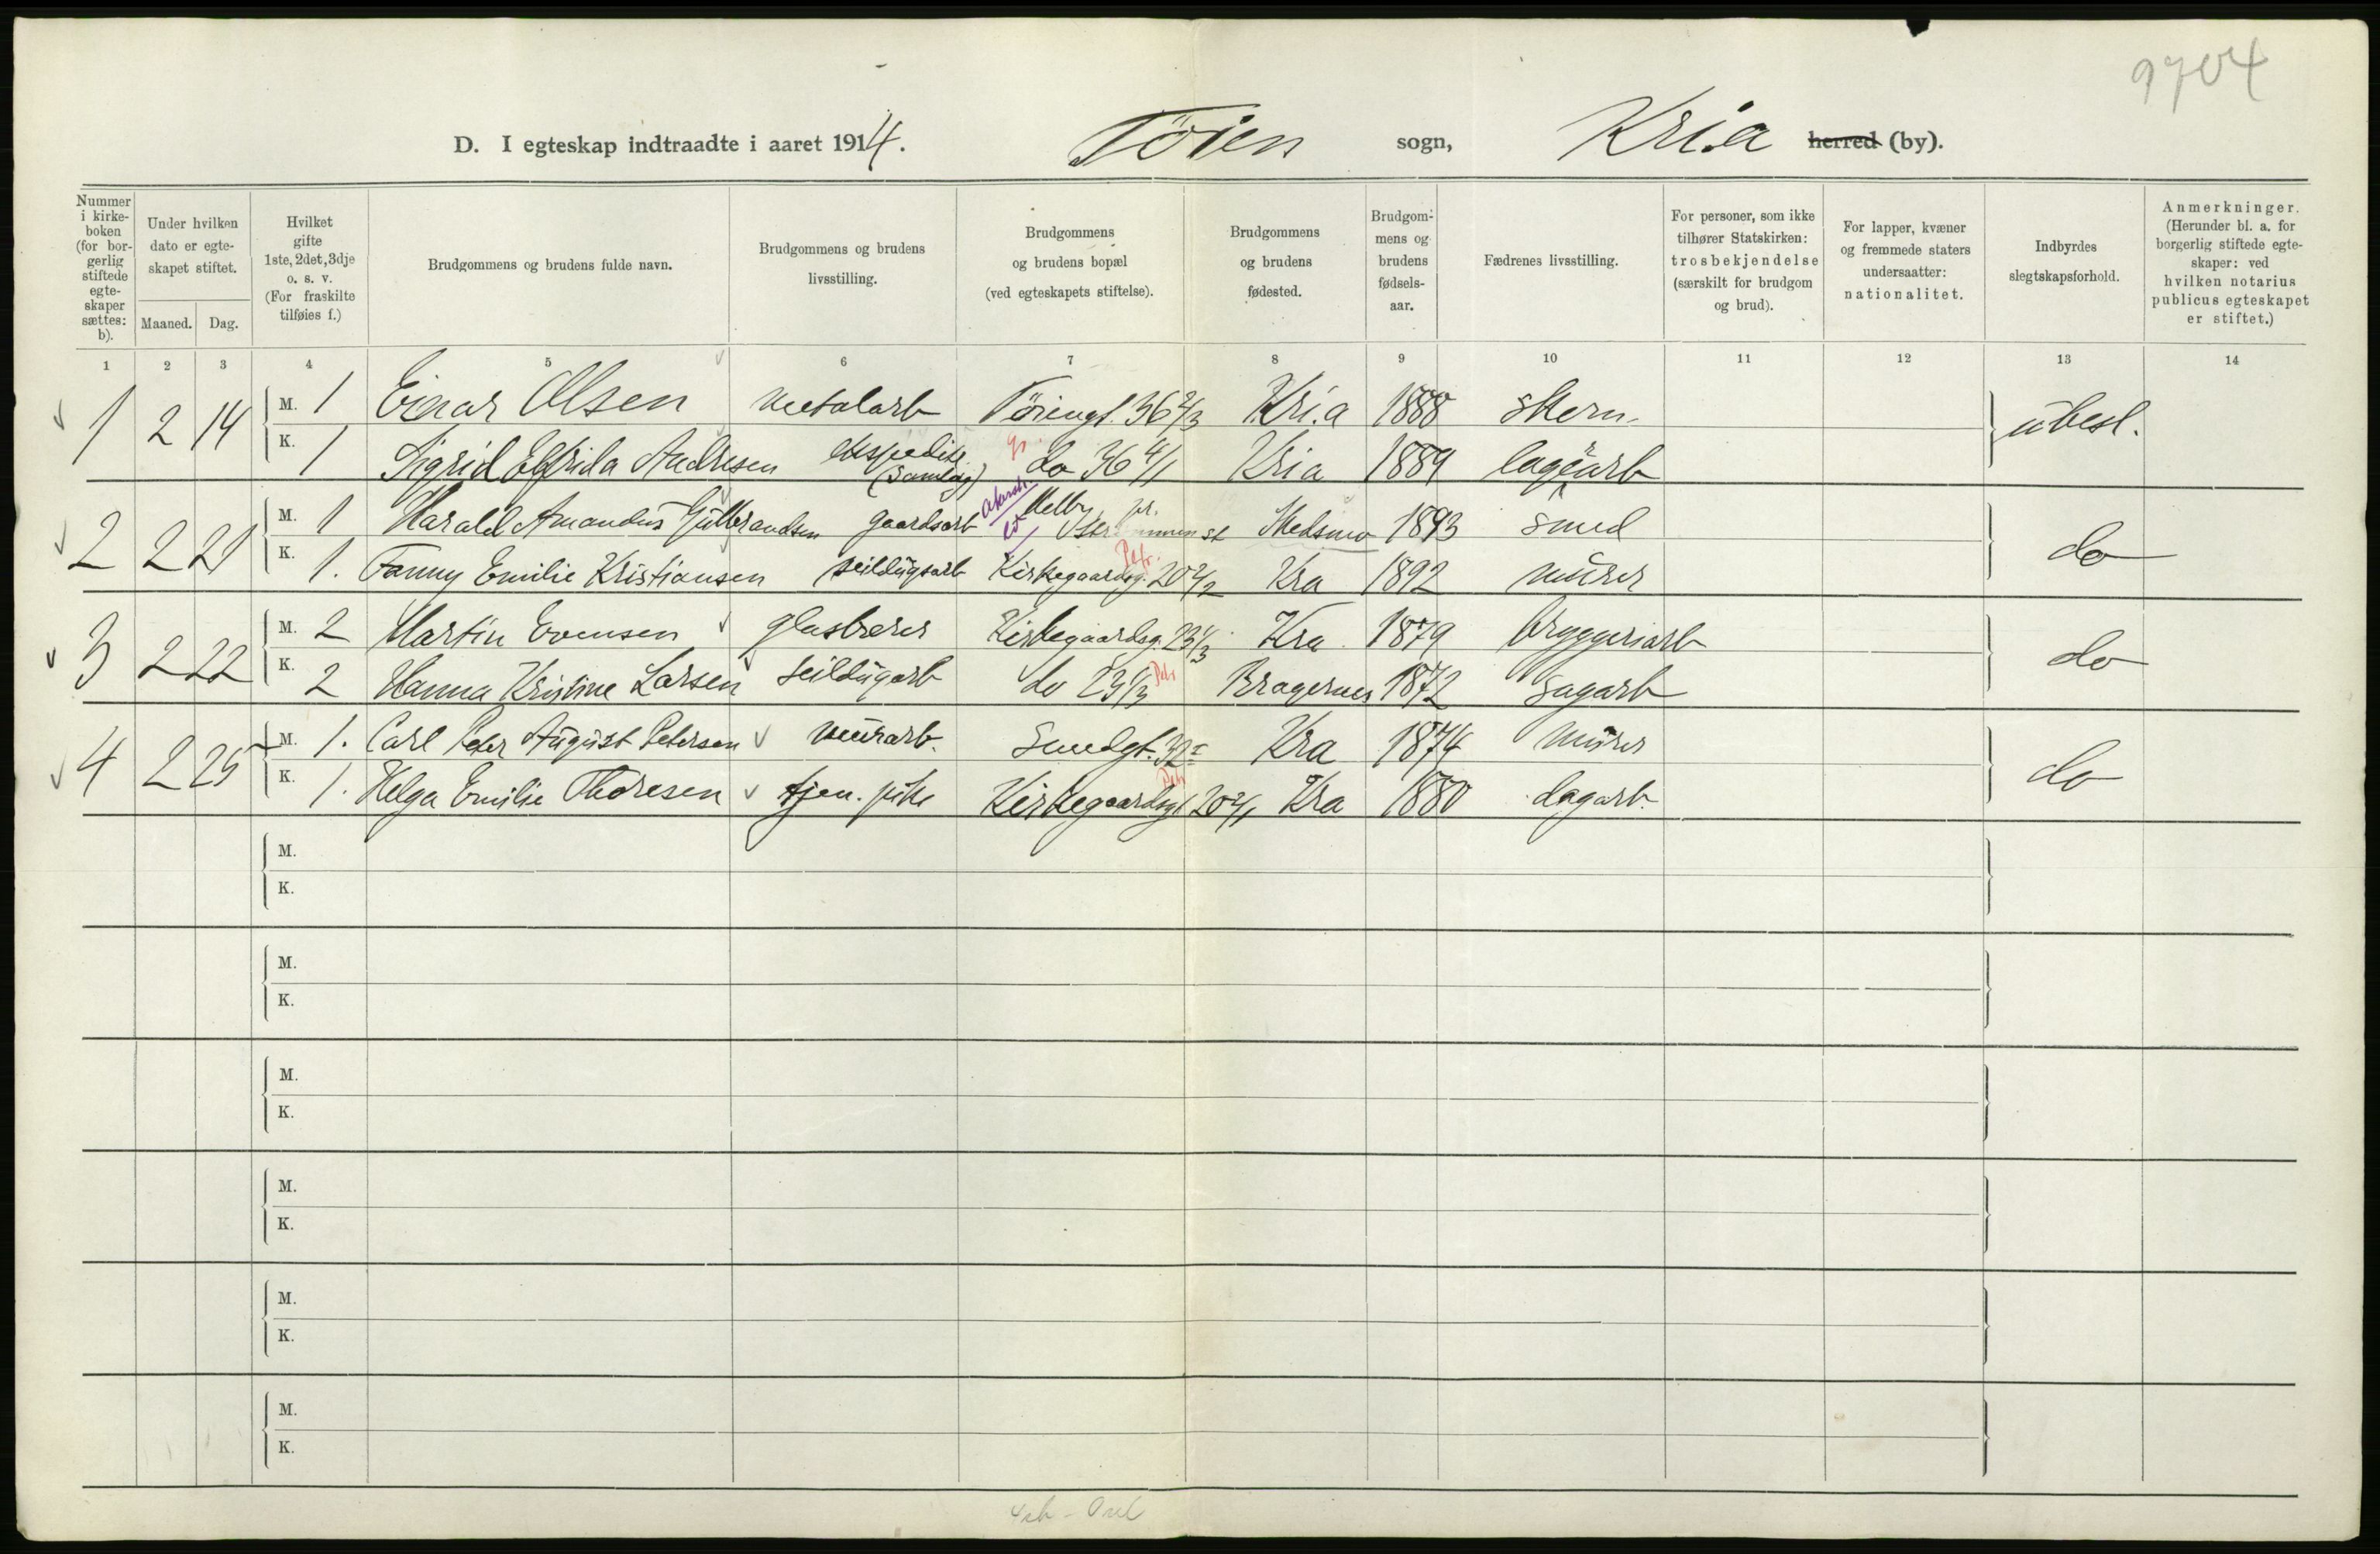 9704
D. I egteskap indtraadte i aaret 1914. Töien sogn, Kria herred (by).
Nummer i kirke-boken (for bor-gerlig stiftede egte-skaper sættes: b).
Under hvilken dato er egte-skapet stiftet.
Maaned. Dag.
Hvilket gifte 1ste, 2det, 3dje o. s. v. (For fraskilte tilføies f.)
Brudgommens og brudens fulde navn.
Brudgommens og brudens livsstilling.
Brudgommens og brudens bopæl (ved egteskapets stiftelse).
Brudgommens og brudens fødested.
Brudgom-mens og brudens fødsels-aar.
Fædrenes livsstilling.
For personer, som ikke tilhører Statskirken: trosbekjendelse (særskilt for brudgom og brud).
For lapper, kvæner og fremmede staters undersaatter: nationalitet.
Indbyrdes slegtskapsforhold.
Anmerkninger. (Herunder bl. a. for borgerlig stiftede egte-skaper: ved hvilken notarius publicus egteskapet er stiftet.)
1 2 3 4 5 6 7 8 9 10 11 12 13 14
1 2 14 M. 1 Einar Olsen metalarb Töiengt. 36 2/3 Kri.a 1888 skom. ubesl.
K. 1 Sigrid Elfrida Andresen (Samlag) do 36 4/1 Kria 1889 lagerarb
2 2 21 M. 1 Harald Amandus Gulbrandsen gaardsarb Melby pr. Strømmen st Skedsmo 1893 smed do
K. 1. Fanny Emilie Kristiansen seildugsarb Kirkegaardsg. 20 2/2 Kra 1892 murer
3 2 22 M. 2 Martin Evensen glasbærer Kirkegaardsg. 23 1/3 Kra 1879 bryggeriarb do
K. 2 Hanna Kristine Larsen seildugarb do 23 1/3 Bragernes 1872 sagarb
4 2 25 M. 1. Carl Peter August Petersen murarb. Smedgt. 32 Kra 1874 murer do
K. 1. Helga Emilie Thoresen tjen. pike Kirkegaardsgt 20 2/1 Kra 1880 dagarb.
M.
K.
M.
K.
M.
K.
M.
K.
M.
K.
M.
K.